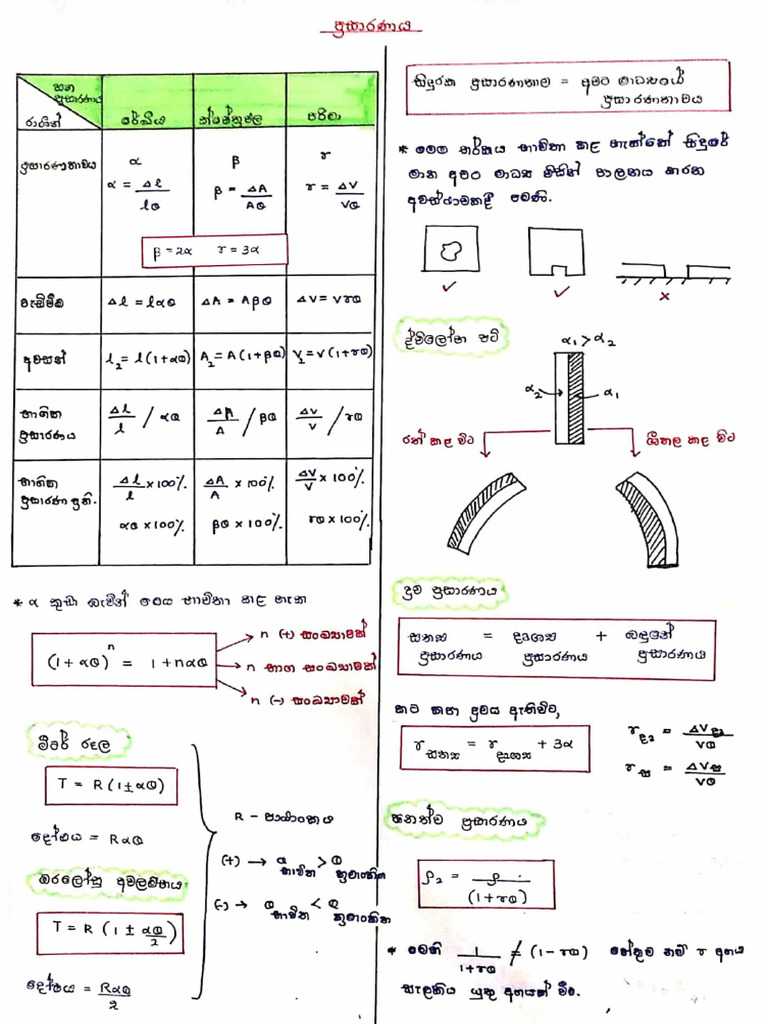 ප්‍රසාරණය
ඝන ප්‍රසාරණය
රාශීන්
රේඛීය
ක්ෂේත්‍රඵල
පරිමා
ප්‍රසාරණතාවය
α
β
γ
α = Δl / lθ
β = ΔA / Aθ
γ = ΔV / Vθ
β = 2α γ = 3α
වැඩිවීම
Δl = lαθ
ΔA = Aβθ
ΔV = Vγθ
අවසන්
l₂ = l(1+αθ)
A₂ = A(1+βθ)
V₂ = V(1+γθ)
භාගික ප්‍රසාරණය
Δl/l / αθ
ΔA/A / βθ
ΔV/V / γθ
භාගික ප්‍රසාරණ ප්‍රති.
Δl/l × 100%
ΔA/A × 100%
ΔV/V × 100%
αθ × 100%
βθ × 100%
γθ × 100%
* α කුඩා බැවින් මෙය භාවිතා කළ හැක
(1 + αθ)ⁿ = 1 + nαθ
n (+) සංඛ්‍යාවක්
n භාග සංඛ්‍යාවක්
n (-) සංඛ්‍යාවක්
මීටර් රූල
T = R (1 ± αθ)
දෝෂය = Rαθ
ඔරලෝසු අවලම්භය
T = R (1 ± αθ/2)
දෝෂය = Rαθ/2
R - පාඨාංකය
(+) → θ භාවිත > θ ක්‍රමාංකිත
(-) → θ භාවිත < θ ක්‍රමාංකිත
සිදුරක ප්‍රසාරණතාව = අවට මාධ්‍යයේ
ප්‍රසාරණතාවය
* මෙම තර්කය භාවිතා කළ හැක්කේ සිදුරේ
මාන අවට මාධ්‍ය විසින් පාලනය කරන
අවස්ථාවකදී පමණි.
✓ ✓ ×
ද්විලෝහ පටි
α₁ > α₂
α₂ α₁
රත් කළ විට
සිසිල් කළ විට
ද්‍රව ප්‍රසාරණය
සත්‍ය = දෘශ්‍ය + බඳුනේ
ප්‍රසාරණය ප්‍රසාරණය ප්‍රසාරණය
කට කපා ද්‍රවය ඇතිවිට,
γ සත්‍ය = γ දෘශ්‍ය + 3α
γ දෘ = ΔV දෘ / Vθ
γ ස = ΔV ස / Vθ
ඝනත්ව ප්‍රසාරණය
ρ₂ = ρ / (1+γθ)
* මෙහි 1/(1+γθ) ≠ (1-γθ) හේතුව නම් γ අගය
සැලකිය යුතු අගයක් වීම.